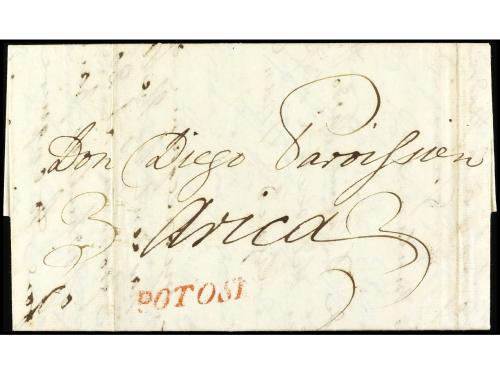 Don Diego Paroissien
3 Arica 3
POTOSI